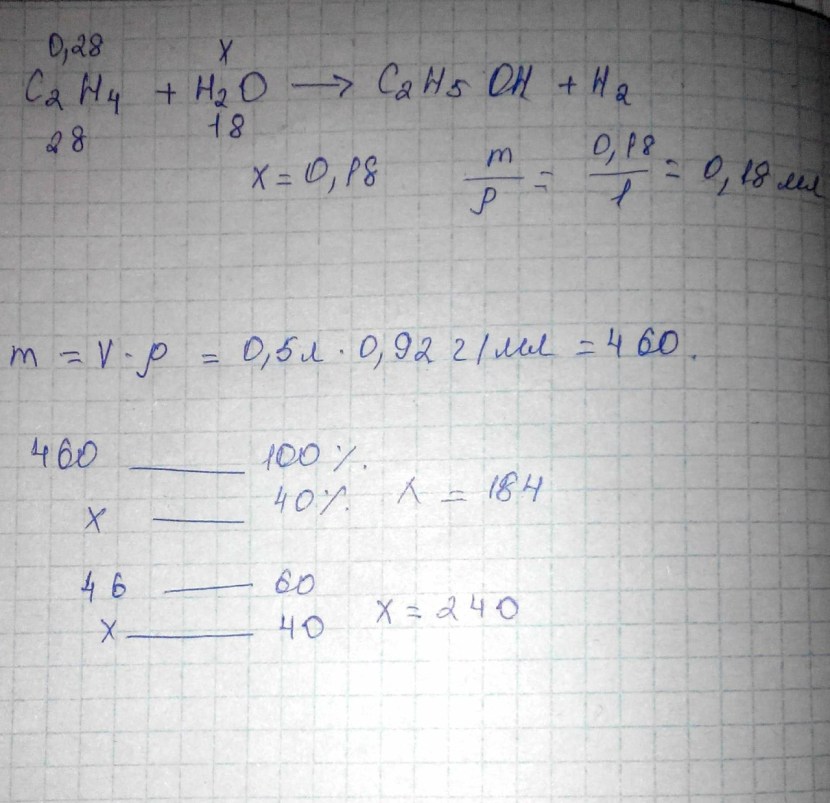 0,28 x
C₂H₄ + H₂O → C₂H₅OH + H₂
28 18
x = 0,18 m/ρ = 0,18/1 = 0,18 мл
m = V · ρ = 0,5л · 0,92 г/мл = 460.
460 — 100%.
x — 40%. x = 184
46 — 60
x — 40 x = 240